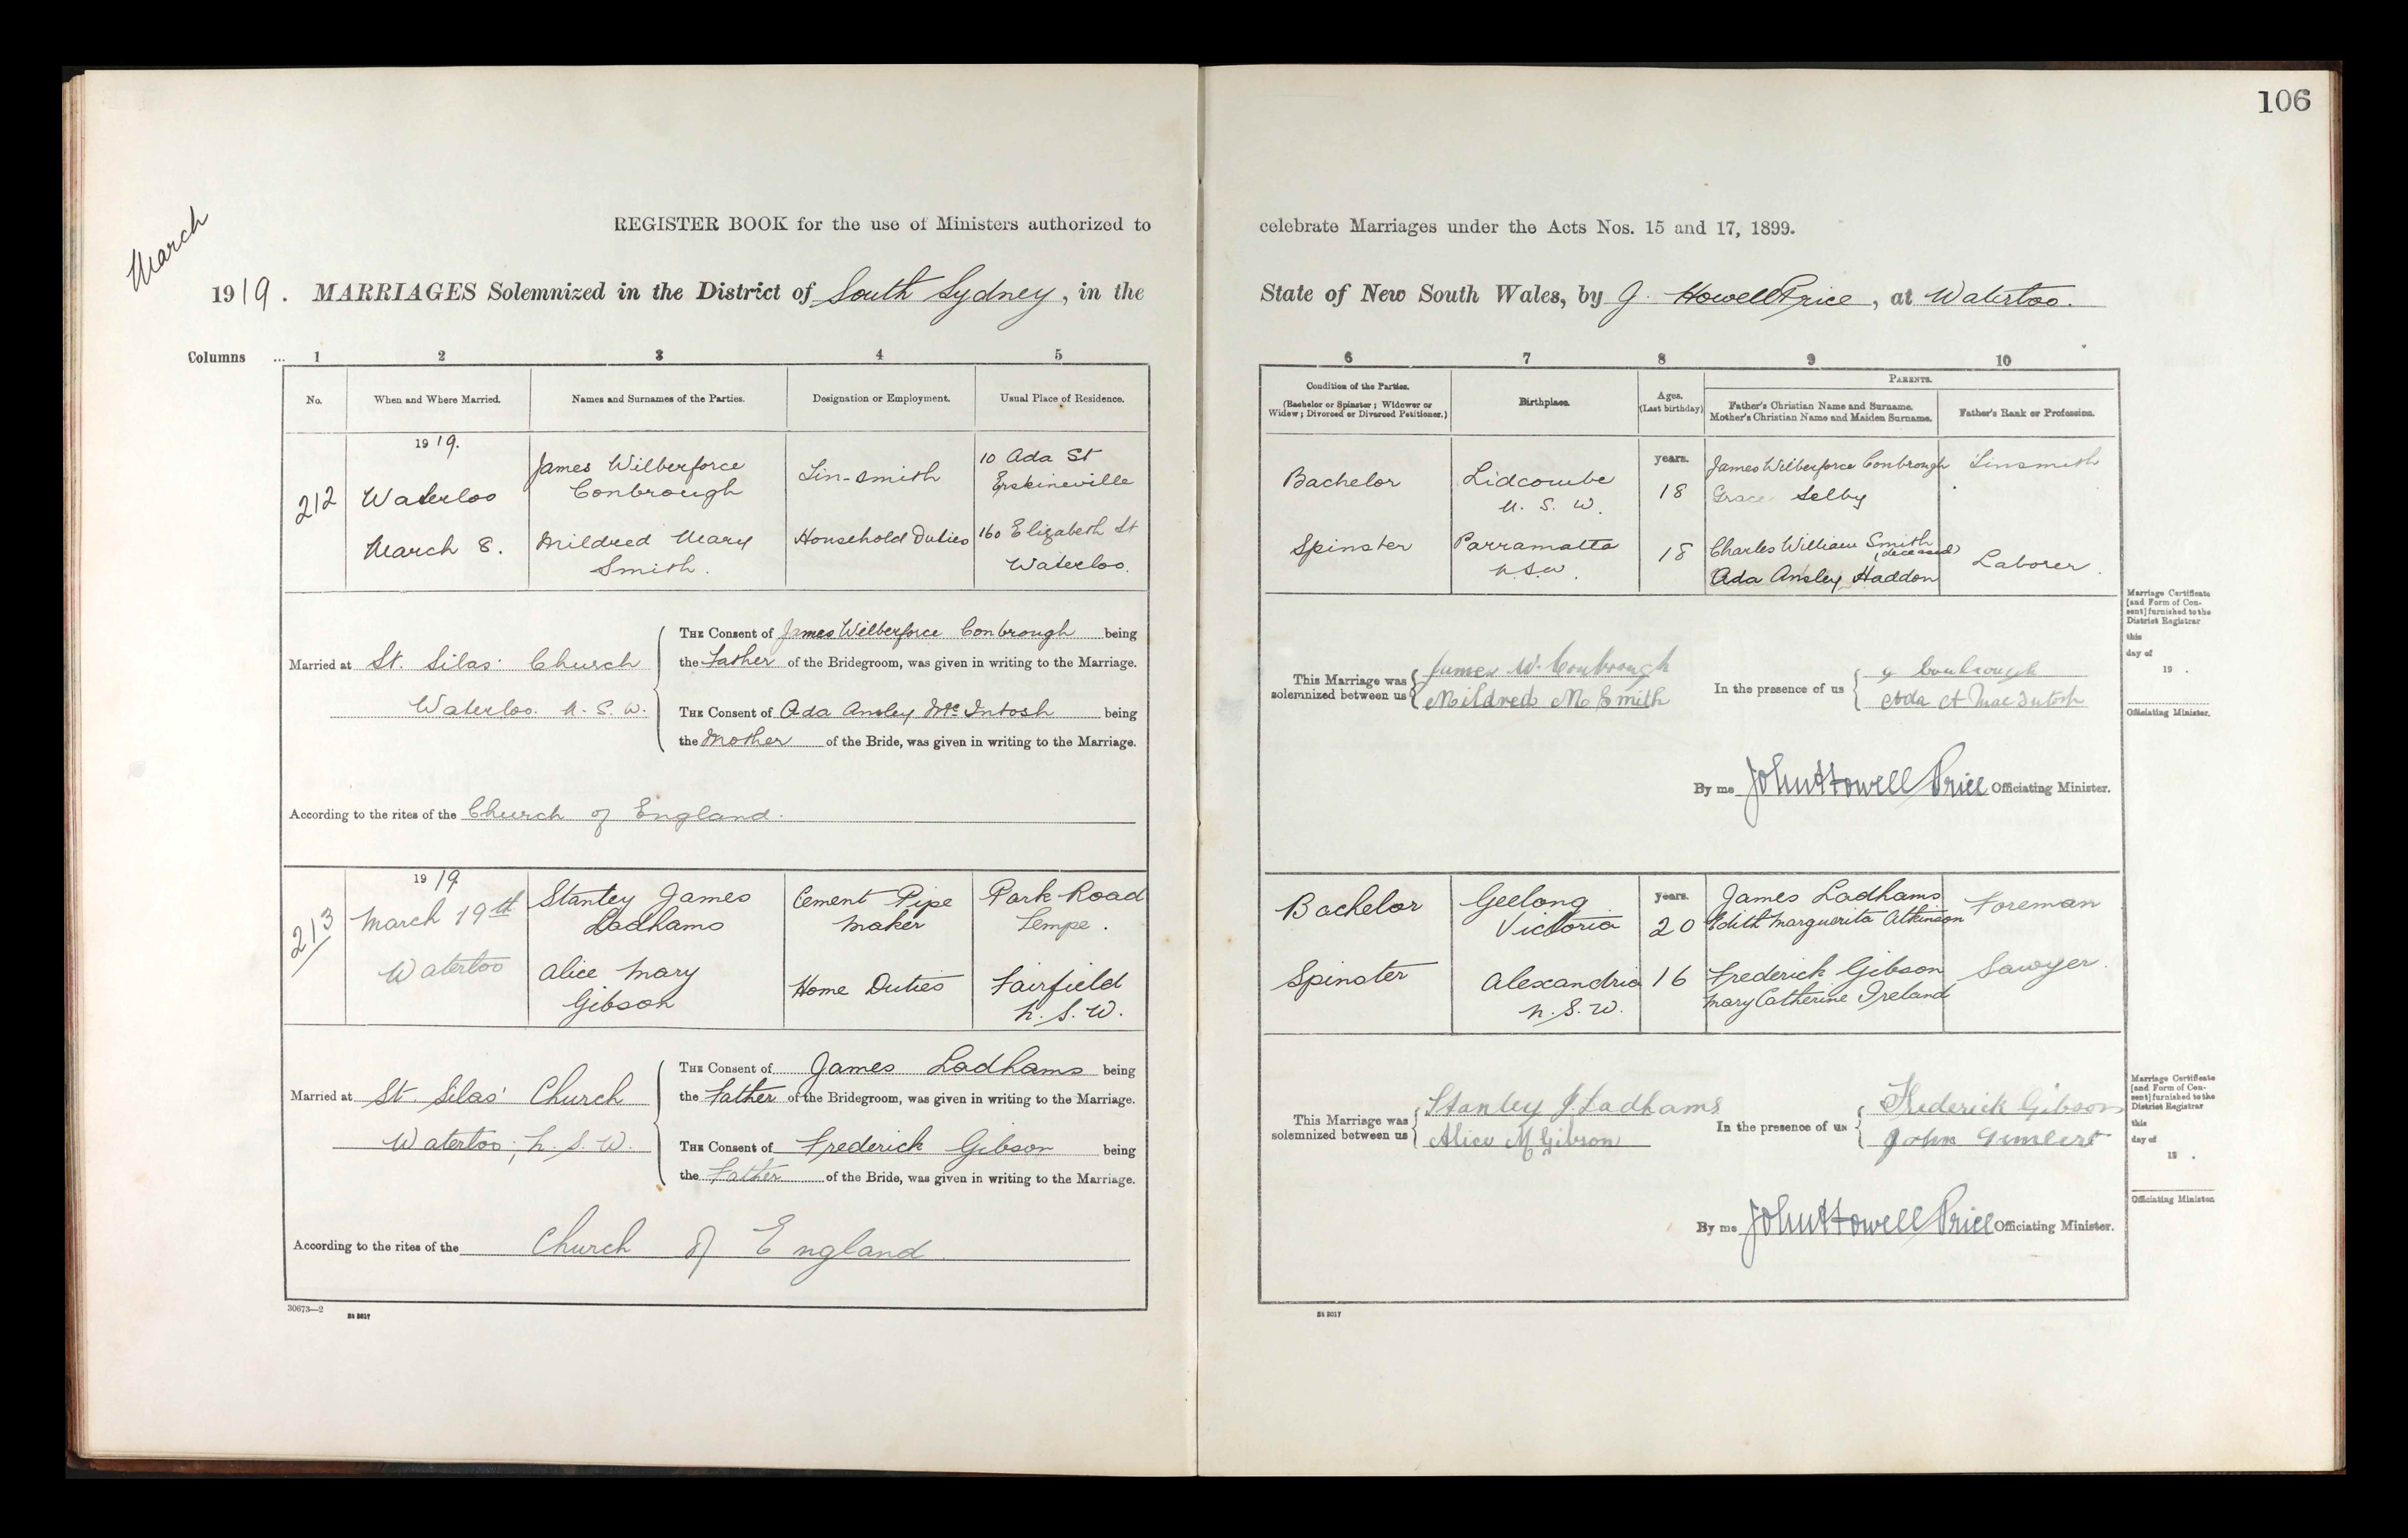 106
March
REGISTER BOOK for the use of Ministers authorized to
1919. MARRIAGES Solemnized in the District of South Sydney, in the
Columns ... 1 2 3 4 5
No. When and Where Married. Names and Surnames of the Parties. Designation or Employment. Usual Place of Residence.
1919.
James Wilberforce Tin-smith 10 Ada St
212 Waterloo Conbrough Erskineville
March 8. Mildred Mary Household Duties 160 Elizabeth St
Smith. Waterloo.
THE Consent of James Wilberforce Conbrough being
Married at St. Silas' Church the Father of the Bridegroom, was given in writing to the Marriage.
Waterloo. N. S. W. THE Consent of Ada Ansley McIntosh being
the Mother of the Bride, was given in writing to the Marriage.
According to the rites of the Church of England.
1919
213 March 19th Stanley James Cement Pipe Park Road
Ladhams Maker Tempe.
Waterloo Alice Mary Home Duties Fairfield
Gibson N. S. W.
THE Consent of James Ladhams being
Married at St. Silas' Church the Father of the Bridegroom, was given in writing to the Marriage.
Waterloo, N. S. W. THE Consent of Frederick Gibson being
the Father of the Bride, was given in writing to the Marriage.
According to the rites of the Church of England.
30673—2
St 3017
celebrate Marriages under the Acts Nos. 15 and 17, 1899.
State of New South Wales, by J. Howell Price, at Waterloo.
6 7 8 9 10
Condition of the Parties. (Bachelor or Spinster; Widower or Widow; Divorced or Divorced Petitioner.)
Birthplace.
Ages. (Last birthday)
PARENTS.
Father's Christian Name and Surname.
Mother's Christian Name and Maiden Surname.
Father's Rank or Profession.
Bachelor Lidcombe years. James Wilberforce Conbrough Tinsmith
N. S. W. 18 Grace Selby
Spinster Parramatta 18 Charles William Smith (deceased) Laborer.
N.S.W. Ada Ansley Haddon
Marriage Certificate
[and Form of Con-
sent] furnished to the
District Registrar
this
day of
19 .
Officiating Minister.
This Marriage was solemnized between us James W. Conbrough
Mildred M Smith
In the presence of us G Conbrough
Ada A MacIntosh
By me John Howell Price Officiating Minister.
Bachelor Geelong years. James Ladhams Foreman
Victoria 20 Edith Marguerita Atkinson
Spinster Alexandria 16 Frederick Gibson Sawyer.
N. S. W. Mary Catherine Ireland
This Marriage was solemnized between us Stanley J Ladhams
Alice M Gibson
In the presence of us Frederick Gibson
John
Marriage Certificate
[and Form of Con-
sent] furnished to the
District Registrar
this
day of
19 .
Officiating Minister.
By me John Howell Price Officiating Minister.
St 3017